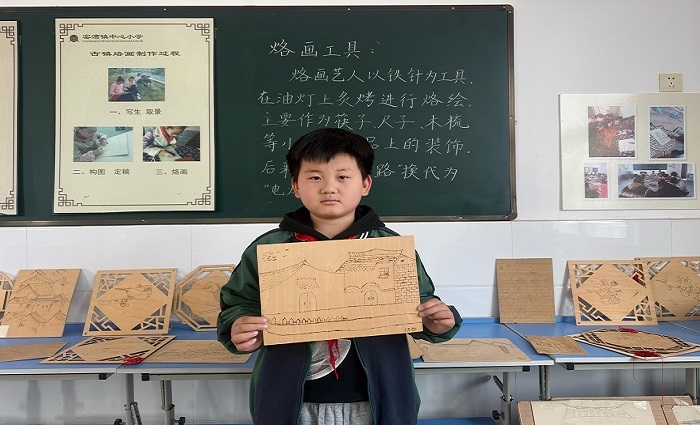 窑湾镇中心小学
古镇烙画制作过程
一、写生 取景
二、构图 定稿
三、烙画
烙画工具：
烙画艺人以铁针为工具，
在油灯上炙烤进行烙绘，
主要作为筷子、尺子、木梳
等小 品上的装饰．
后来 路"换代为
"电